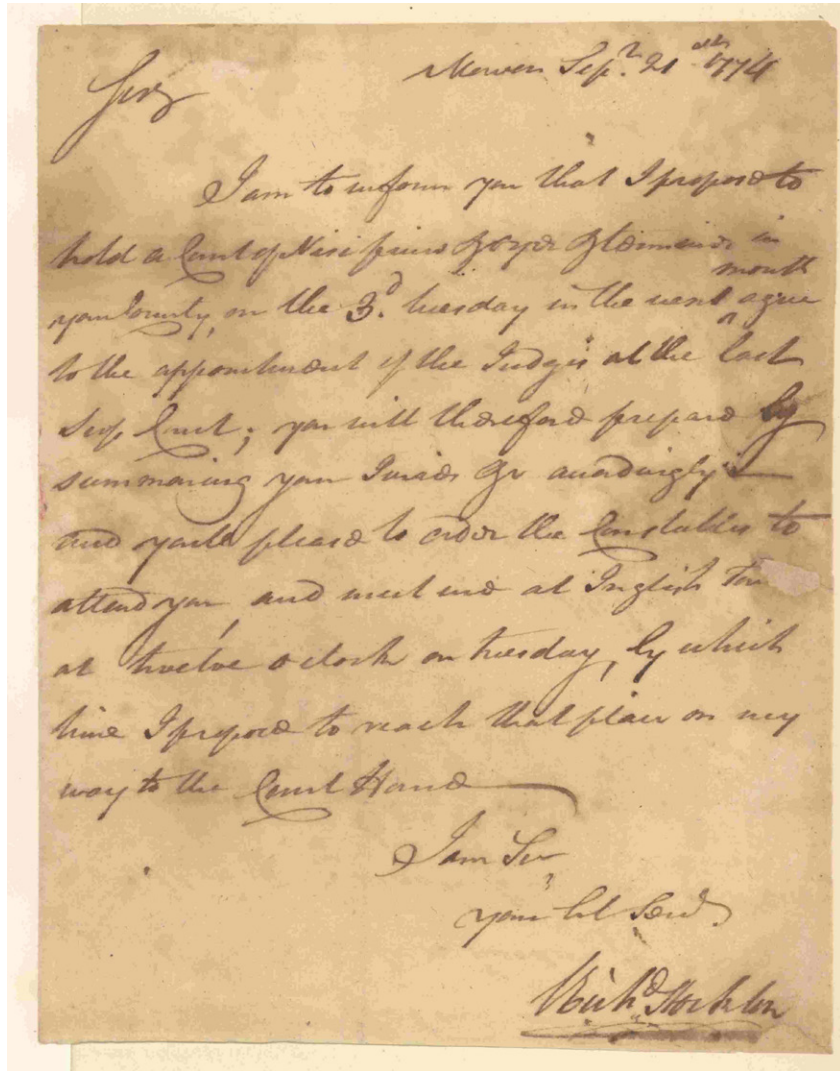 Morven Sepr. 21 1774
Sir
I am to inform you that I propose to
hold a Court of Nisi prius & oyer & terminer in
your County, on the 3d. tuesday in the next month agree
to the appointment of the Judges at the last
Sup. Court; you will therefore prepare by
summoning your Juries &c accordingly
and youll please to order the Constables to
attend you, and meet me at Inglish Town
at twelve o clock on tuesday, by which
time I propose to reach that place on my
way to the Court House
I am Sir
your Servt.
Richd. Stockton